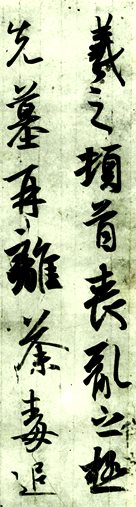 羲之頓首喪亂之極
先墓再離荼毒追